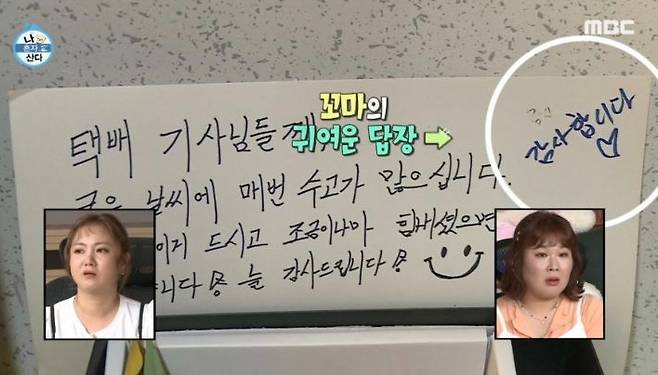 나
혼자 산다
MBC
꼬마의
귀여운 답장
감사합니다
택배 기사님들께
궂은 날씨에 매번 수고가 많으십니다.
드시고 조금이나마 힘내셨으면
늘 감사드립니다